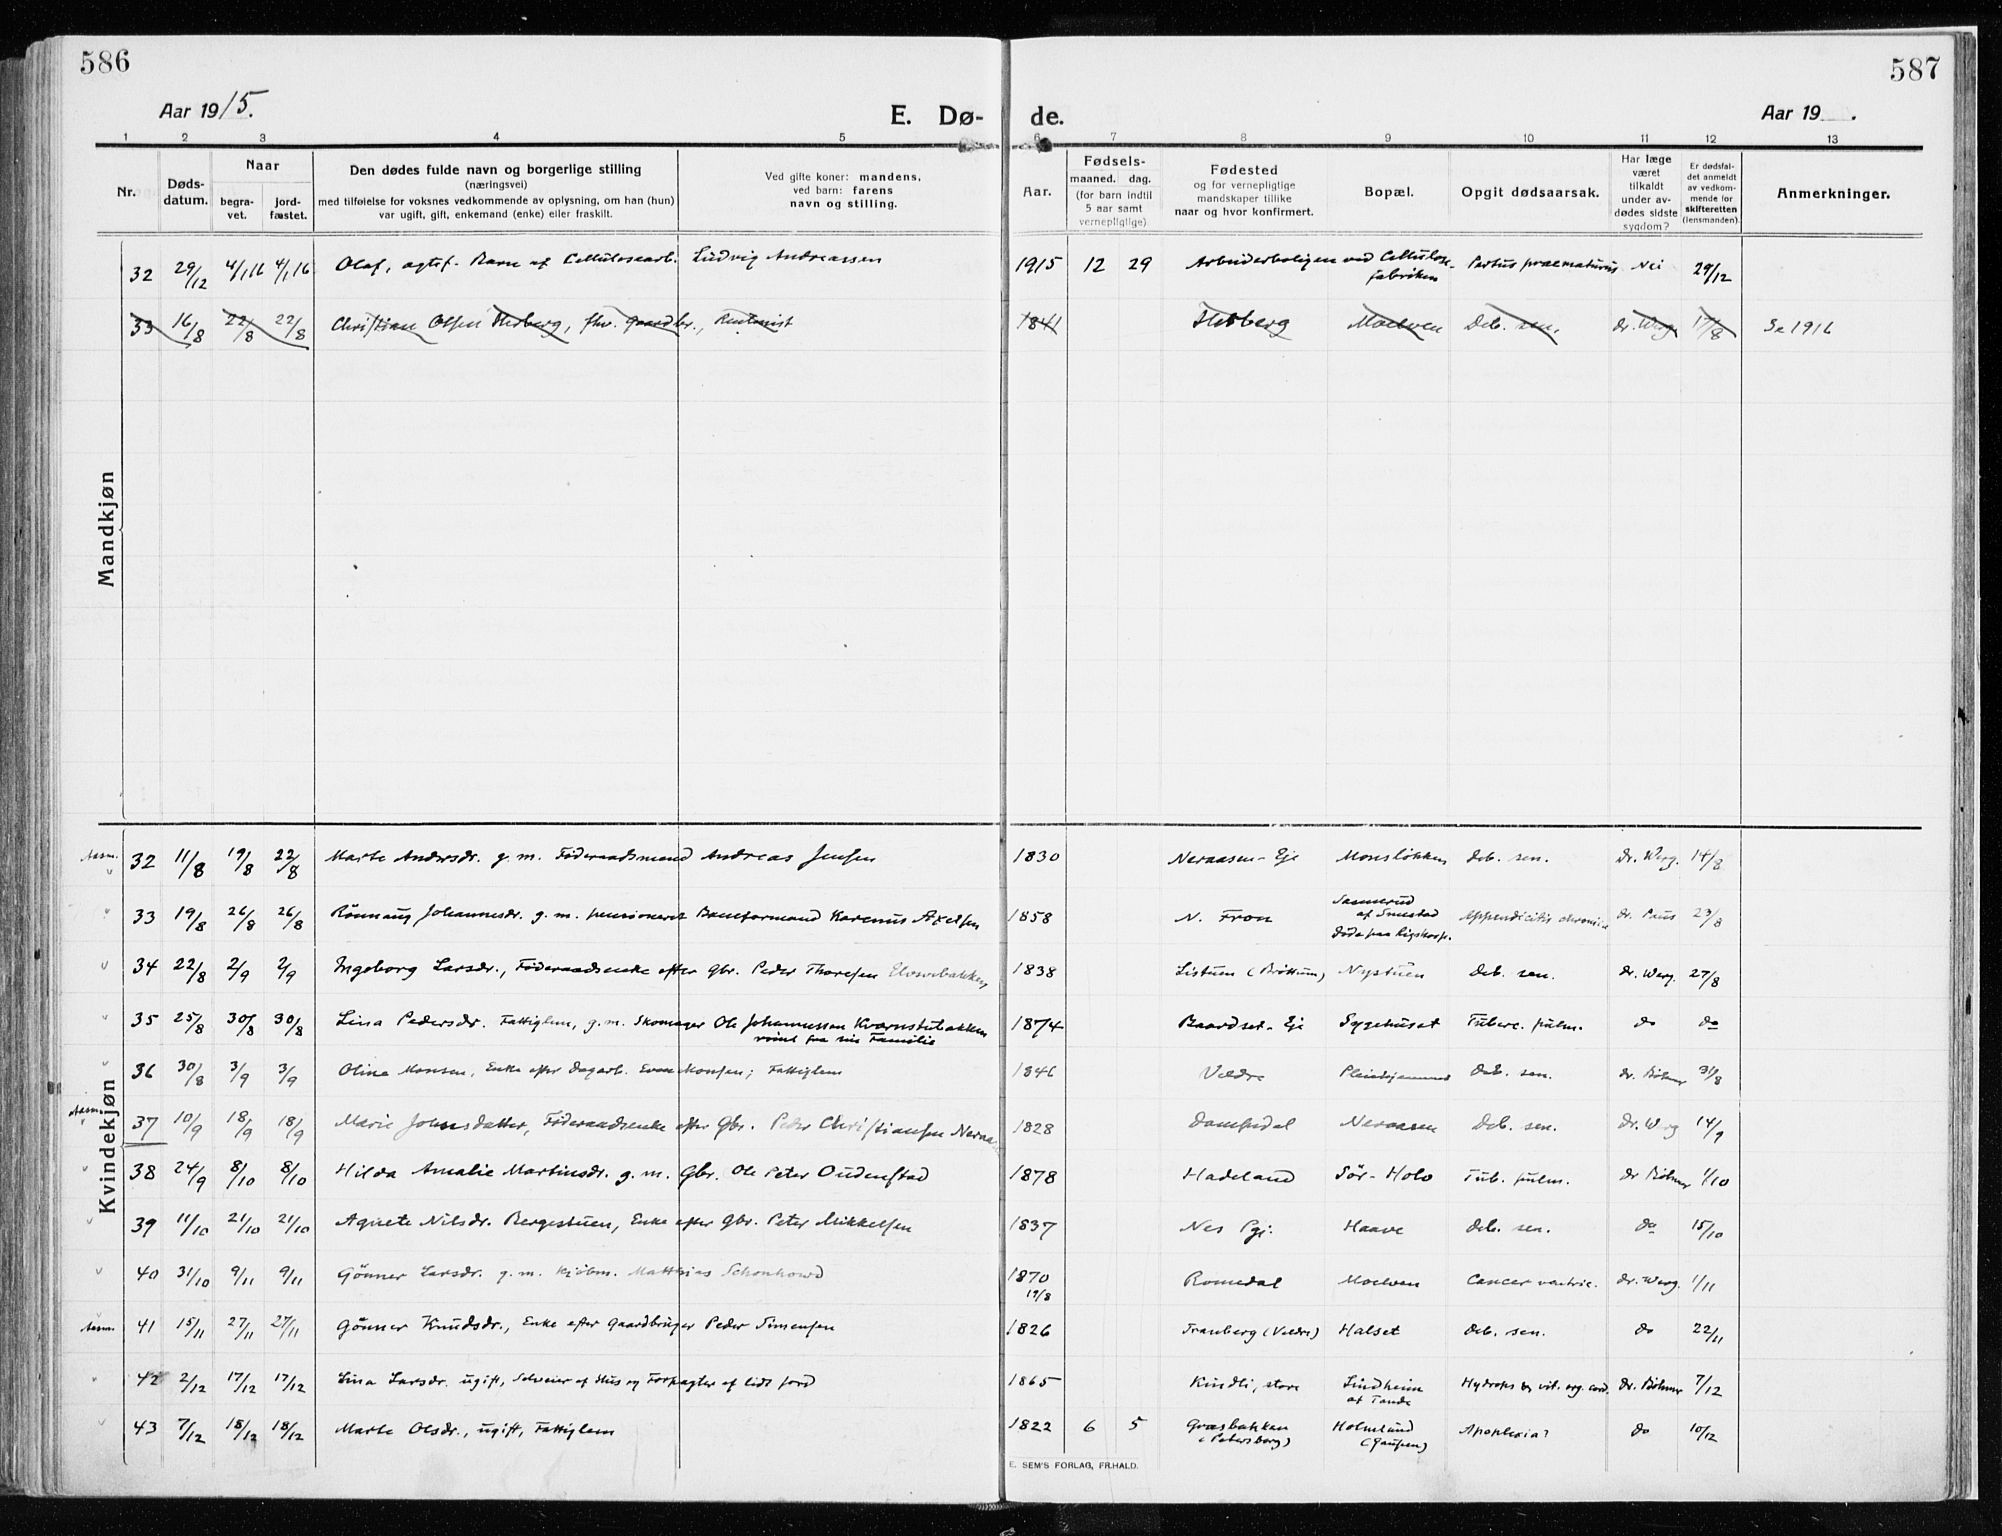 586
587
Aar 1915.
E. Dø-
de.
Aar 19 .
1 2 3 4 5 6 7 8 9 10 11 12 13
Nr.
Døds-
datum.
Naar
begra-
vet.
jord-
fæstet.
Den dødes fulde navn og borgerlige stilling
(næringsvei)
med tilføielse for voksnes vedkommende av oplysning, om han (hun)
var ugift, gift, enkemand (enke) eller fraskilt.
Ved gifte koner: mandens,
ved barn: farens
navn og stilling.
Aar.
Fødsels-
maaned. dag.
(for barn indtil
5 aar samt
vernepligtige)
Fødested
og for vernepligtige
mandskaper tillike
naar og hvor konfirmert.
Bopæl.
Opgit dødsaarsak.
Har læge
været
tilkaldt
under av-
dødes sidste
sygdom?
Er dødsfal-
det anmeldt
av vedkom-
mende for
skifteretten
(lensmanden).
Anmerkninger.
Mandkjøn
32 29/12 4/1 16 4/1 16 Olaf, ægtef. Barn af Cellulosearb. Ludvig Andreassen 1915 12 29 Arbeiderboligen ved Cellulose-
fabriken Partus praematurus Nei 29/12
33 16/8 22/8 22/8 Christian Olsen Stesberg, fhv. Gaardbr., Rentenist 1841 Stesberg Moelven Deb. sen. dr. Werg. 17/8 Se 1916
Kvindekjøn
Aasm. 32 11/8 19/8 22/8 Marte Andersdr. g. m. Føderaadsmand Andreas Jensen 1830 Neraasen-Eje Monsløkken deb. sen. Dr. Werg. 14/8
33 19/8 26/8 26/8 Rønnaug Johannesdr. g. m. pensioneret Baneformand Karenus Axelsen 1858 N. Fron
af Smestad
Døde paa Rigshosp. Appendicitis chronica dr. Paus 23/8
34 22/8 2/9 2/9 Ingeborg Larsdr., Føderaadsenke efter Gbr. Peder Thoresen 1838 Listum (Brøttum) Nystuen Deb. sen. dr. Werg. 27/8
35 25/8 30/8 30/8 Lina Pedersdr. Fattiglem, g. m. Skomager Ole Johannessen Kværnstubakken
rømt fra sin Familie 1874 Baardset-Eje Sygehuset Tuberc. pulm. do do
36 30/8 3/9 3/9 Oline Monsen, Enke efter Dagarb. Even Monsen; Fattiglem 1846 Veldre Pleiehjemmet Deb. sen. dr. Bøhmer 31/8
Aasm. 37 10/9 18/9 18/9 Marie Johnsdatter, Føderaadsenke efter Gbr. Peder Christiansen Neraas 1828 Neraasen Deb. sen. Dr. Werg 14/9
38 24/9 8/10 8/10 Hilda Amalie Martinsdr. g. m. Gbr. Ole Peter Oudenstad 1878 Hadeland Sør-Holo Tub. pulm. dr Bøhmer 1/10
39 11/10 21/10 21/10 Agnete Nilsdr. Bergestuen, Enke efter Gbr. Peter Mikkelsen 1837 Nes Pgj. Haave deb. sen. do 15/10
40 31/10 9/11 9/11 Gønner Larsdr. g. m. Kjøbm. Matthias Schonhowd 1870
19/8 Romedal Moelven Cancer ventric. dr. Werg. 1/11
Aasm. 41 15/11 27/11 27/11 Gønner Knudsdr., Enke efter Gaardbruger Peder Simensen 1826 Tranberg (Veldre) Halset deb. sen. do 22/11
42 2/12 17/12 17/12 Lina Larsdr. ugift, Selveier af Hus og Forpagter af lidt jord 1865 Kindli, store Lindheim
af Tande Hydrops by vit. org. cord. Dr. Bøhmer 7/12
43 7/12 18/12 18/12 Marte Olsdr., ugift, Fattiglem 1822 6 5 Græsbakken
(Petersborg) Holmlund
(Gaupen) Apoplexia? do 10/12
E. SEM'S FORLAG, FR.HALD.